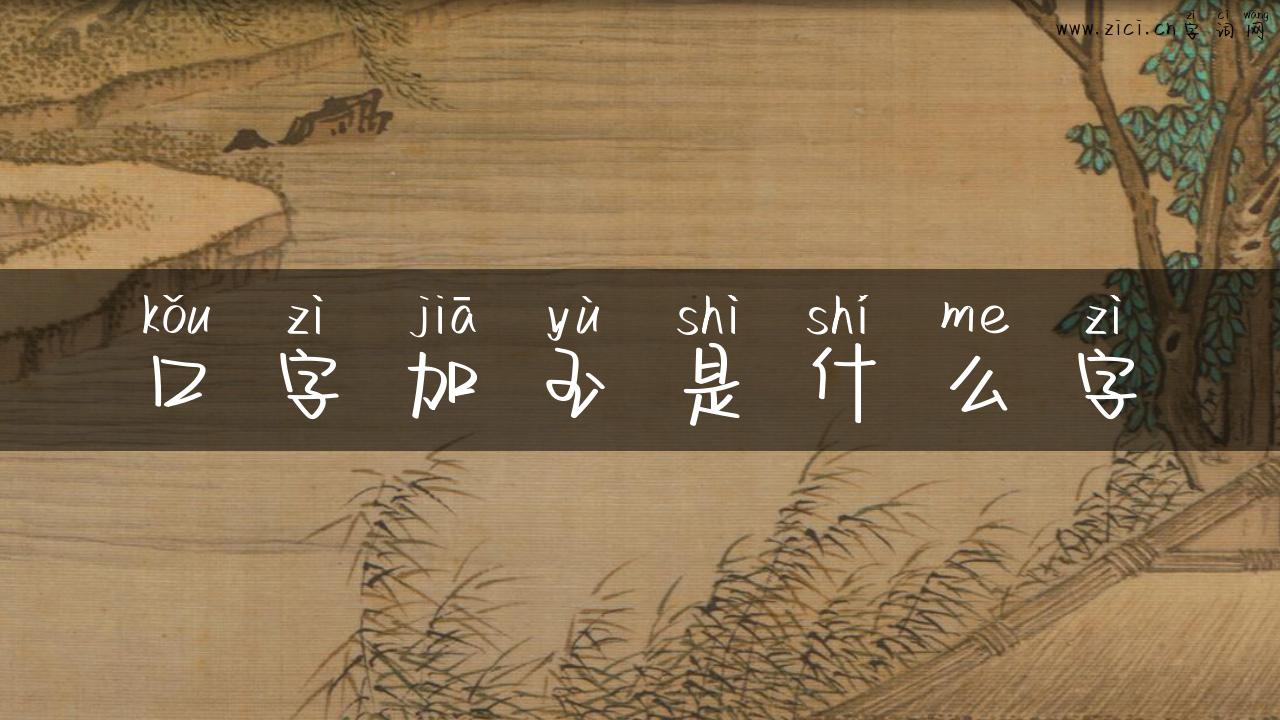 zì cí wǎng
www.zici.cn字词网
kǒu zì jiā yù shì shí me zì
口字加玉是什么字